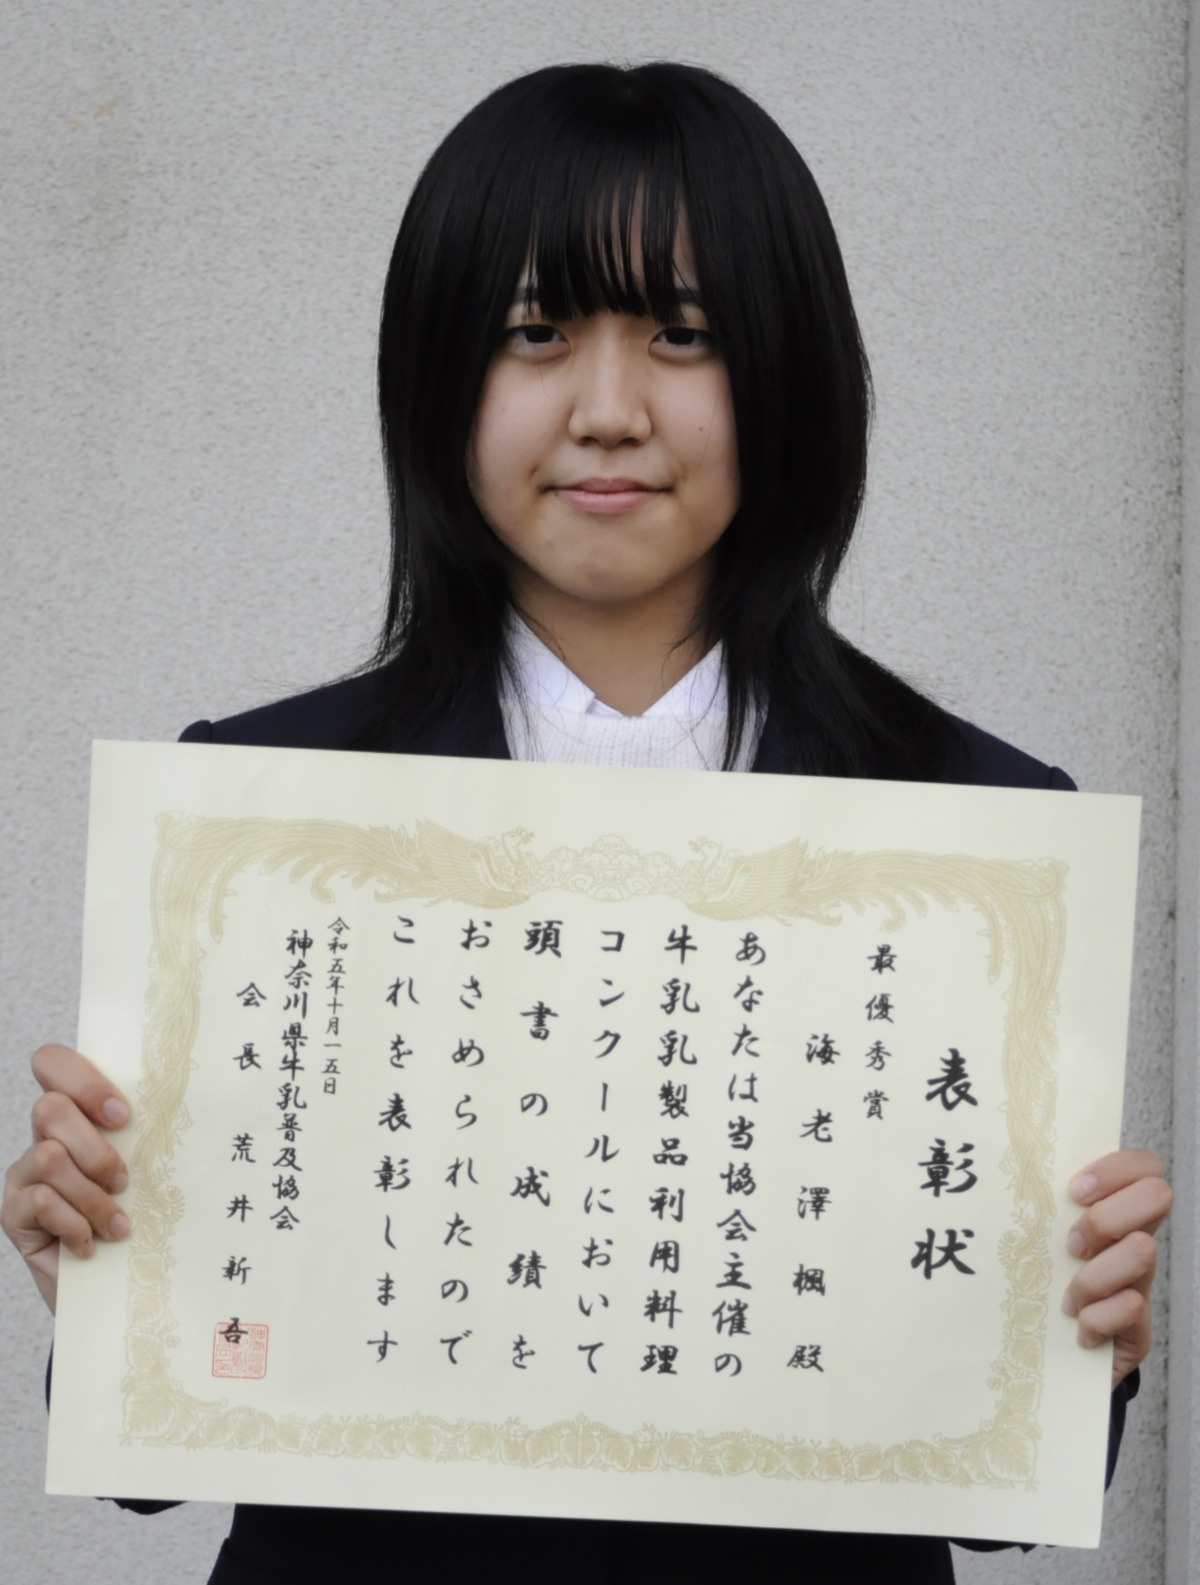 表彰状
最優秀賞
海老澤楓殿
あなたは当協会主催の
牛乳乳製品利用料理
コンクールにおいて
頭書の成績を
おさめられたので
これを表彰します
令和五年十月一五日
神奈川県牛乳普及協会
会長荒井新吾